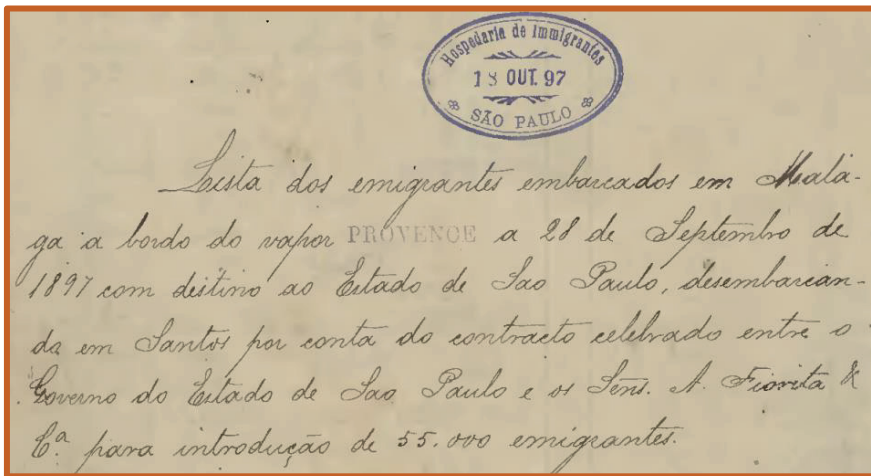 Hospedaria de Immigrantes
18 OUT. 97
SÃO PAULO
Lista dos emigrantes embarcados em Mala-
ga a bordo do vapor PROVENCE a 28 de Septembro de
1897 com distino ao Estado de Sao Paulo, desembarcan-
do em Santos por conta do contracto celebrado entre o
Governo do Estado de Sao Paulo e os Sens. A. Fiorita &
Cª para introducção de 55.000 emigrantes.